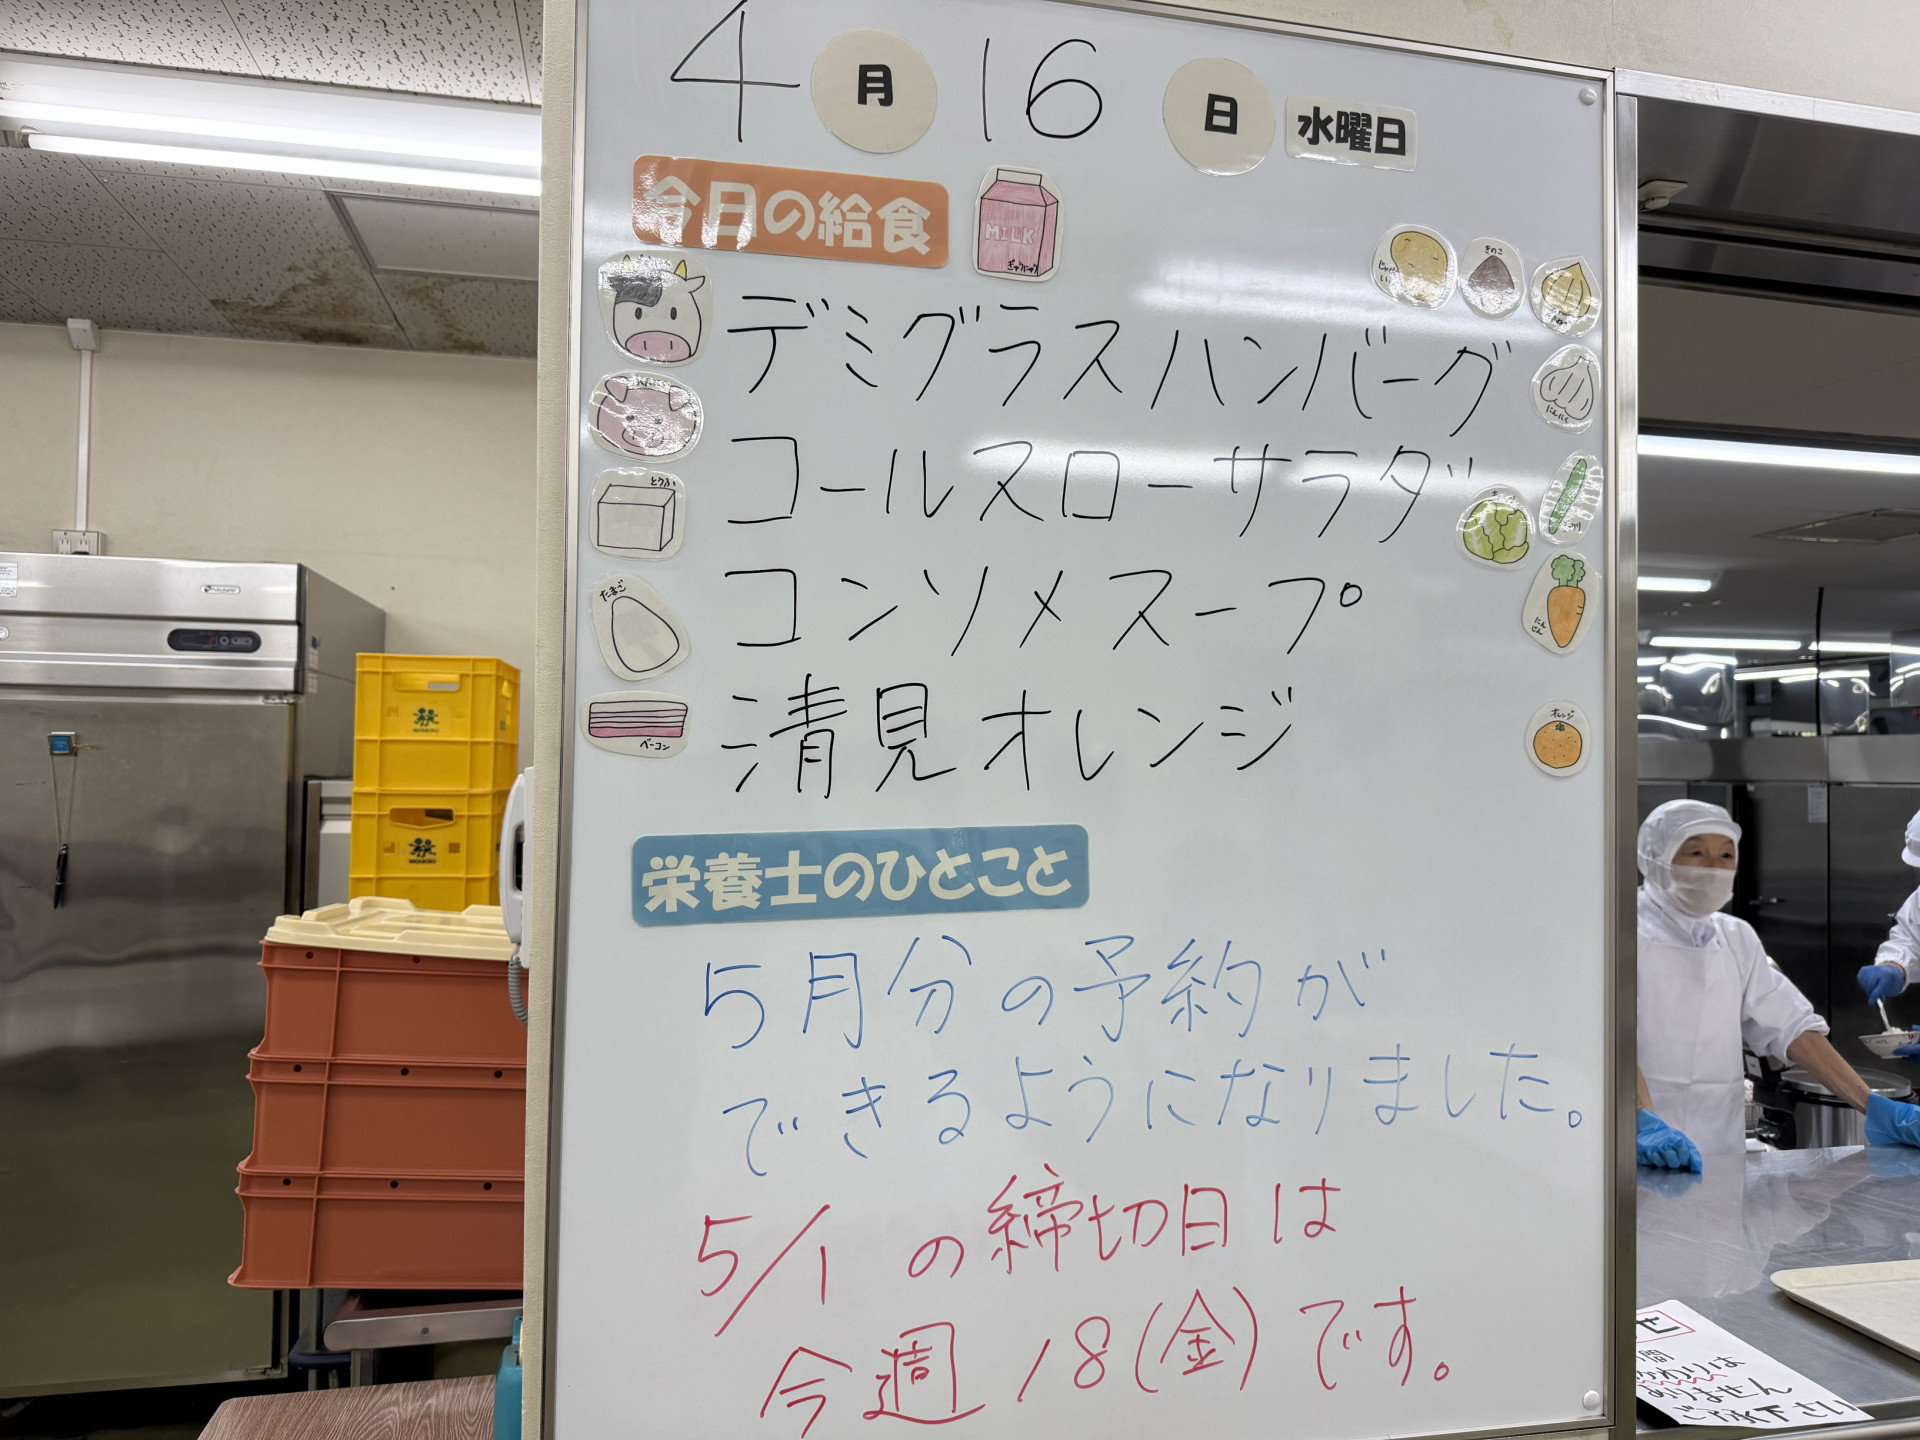 4月16日 水曜日
今日の給食
MILK
ぎゅうにゅう
きのこ
デミグラスハンバーグ
にんにく
コールスローサラダ
とうふ
コンソメスープ
たまご
にんじん
清見オレンジ
ベーコン
オレンジ
栄養士のひとこと
5月分の予約が
できるようになりました。
5/1の締切日は
今週18(金)です。
せ
間
かわりは
ありません
ご了承下さい